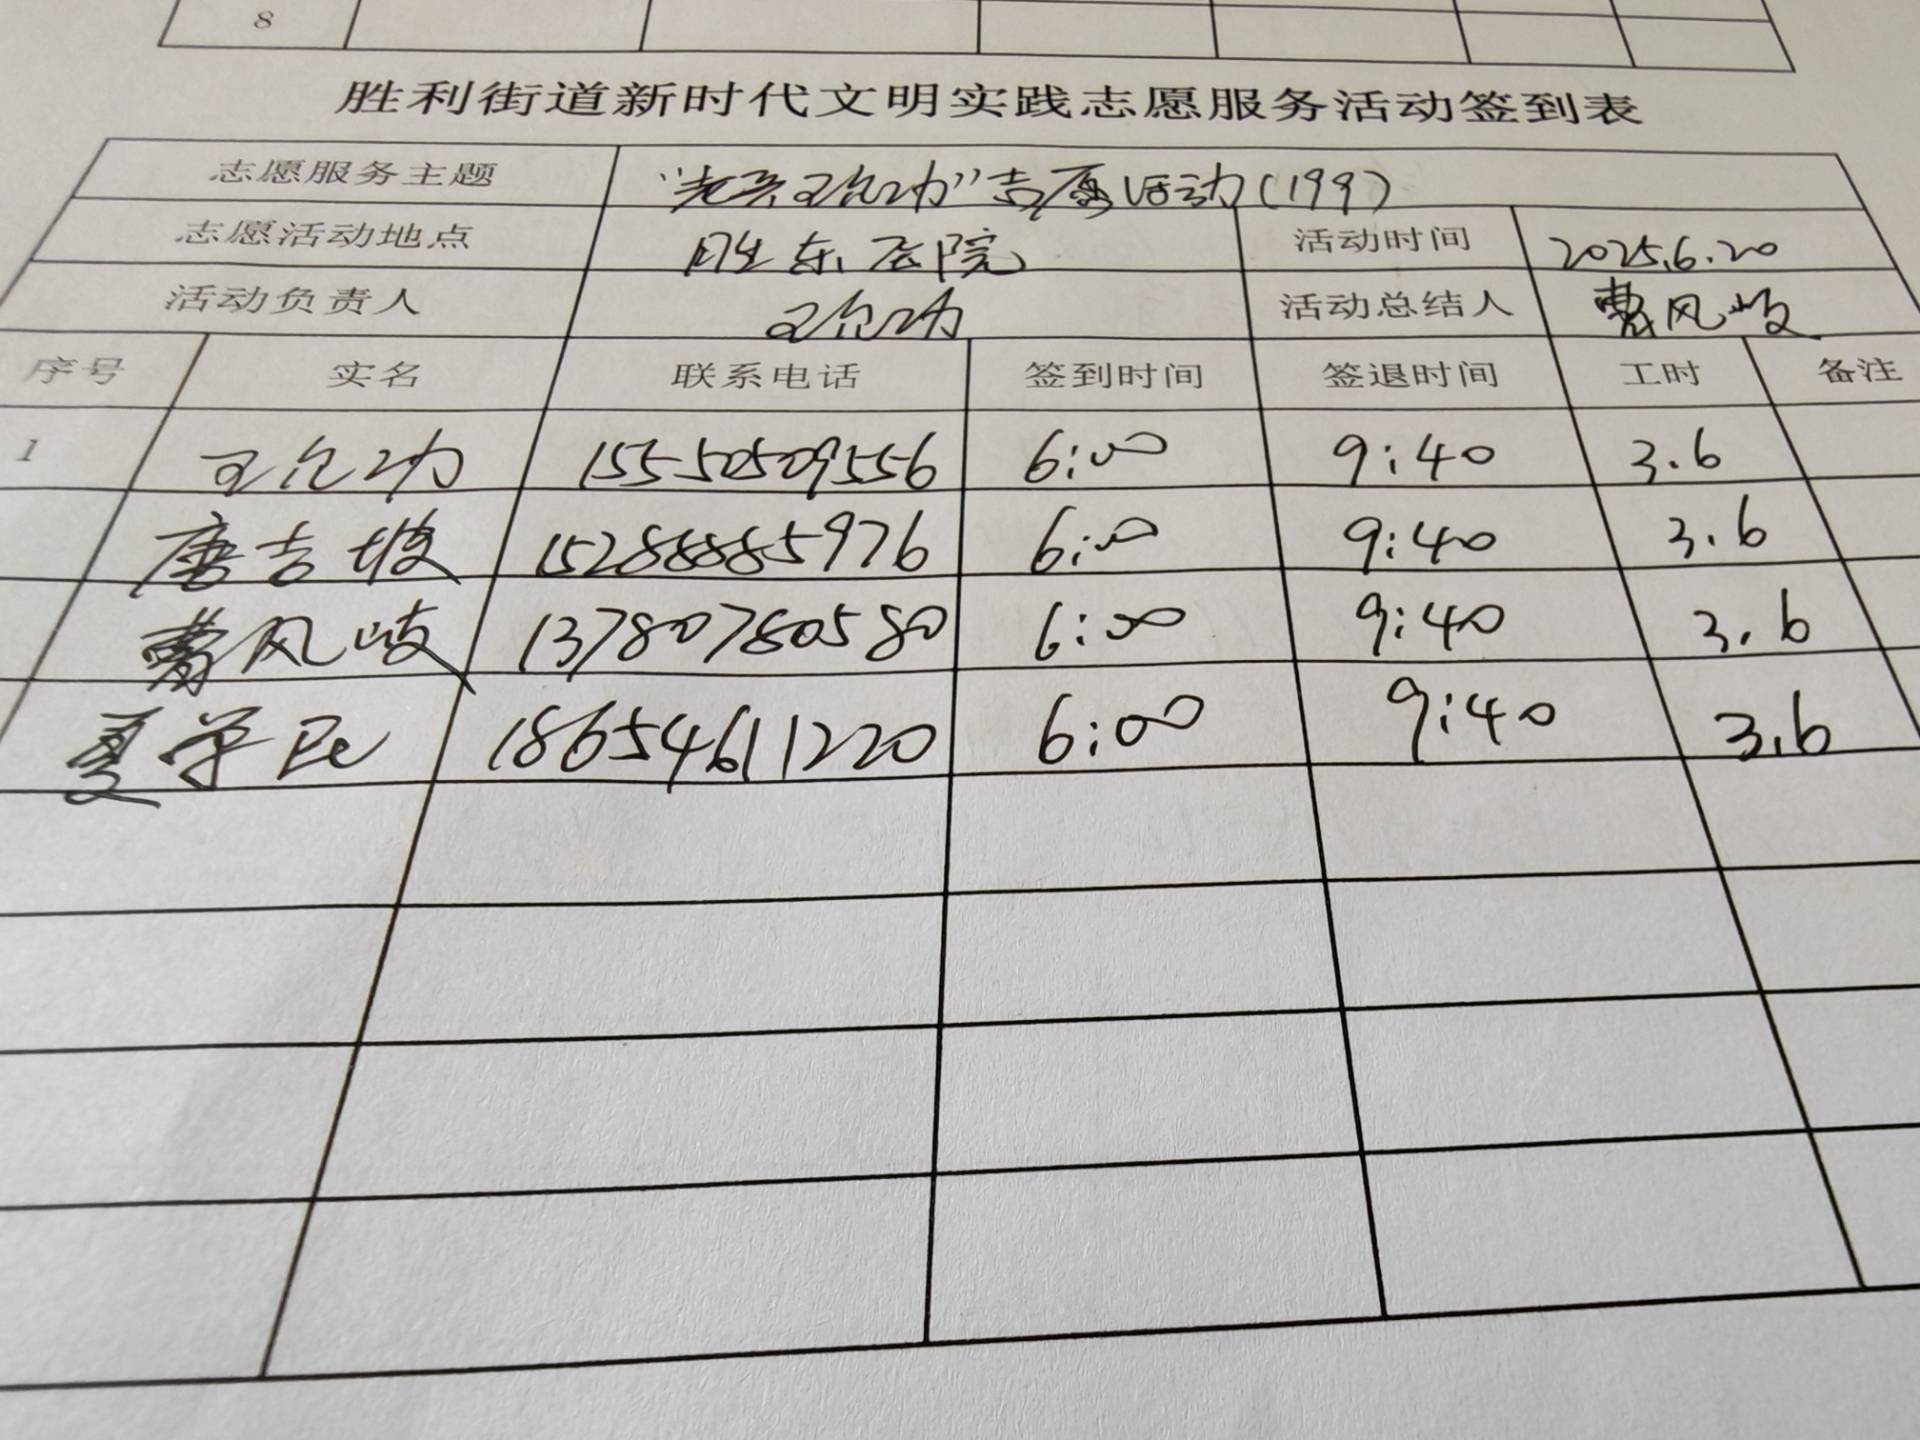 8
胜利街道新时代文明实践志愿服务活动签到表
志愿服务主题 "老兵王允功"志愿活动(199)
志愿活动地点 胜东医院 活动时间 2025.6.20
活动负责人 王允功 活动总结人 曹风岐
序号 实名 联系电话 签到时间 签退时间 工时 备注
1 王允功 15550509556 6:00 9:40 3.6
唐吉坡 15288885976 6:00 9:40 3.6
曹风岐 13780780580 6:00 9:40 3.6
夏学民 18654611220 6:00 9:40 3.6